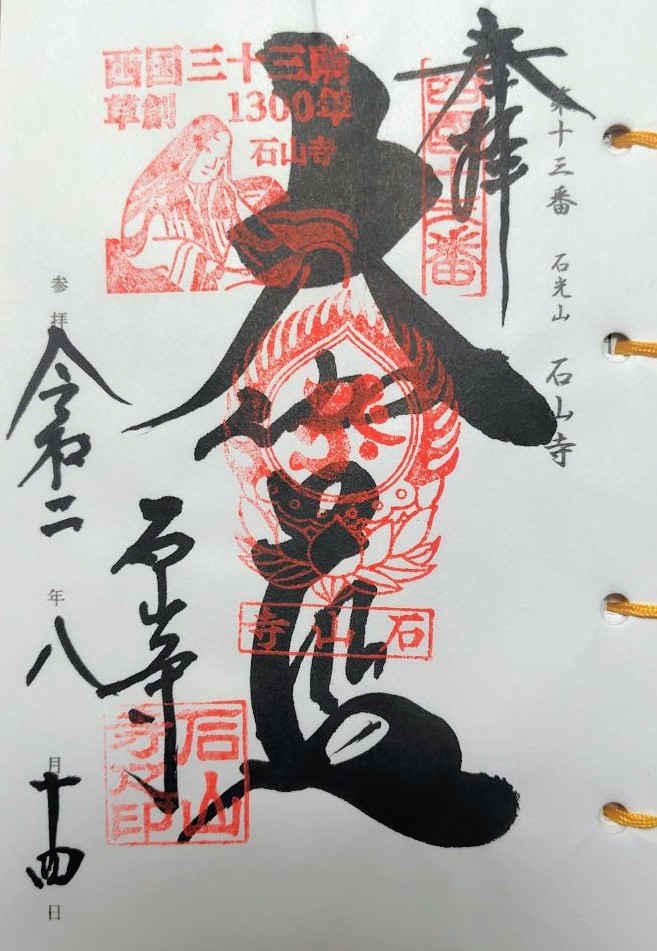 第十三番 石光山 石山寺
奉拝
西國十三番
西国三十三所
草創 1300年
石山寺
大伽藍
石山寺
石山寺
石山
寺之印
参拝 令和二年八月十四日